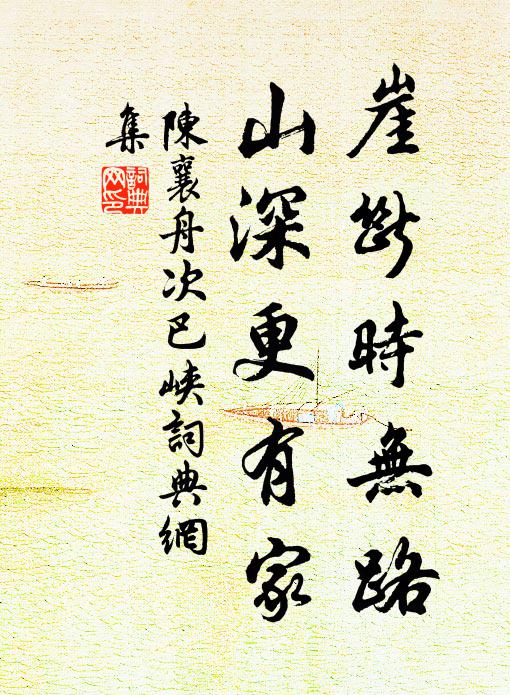 崖斷時無路
山深更有家
陳襄舟次巴峽詞典網
集
詞典
网印